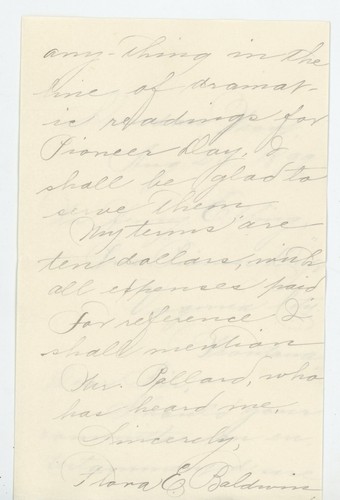 any-thing in the
line of dramat-
ic readings for
Pioneer Day, I
shall be glad to
serve them.
My terms are
ten dollars, with
all expenses paid
For reference I
shall mention
Mr. Pollard, who
has heard me.
Sincerely,
Flora E. Baldwin